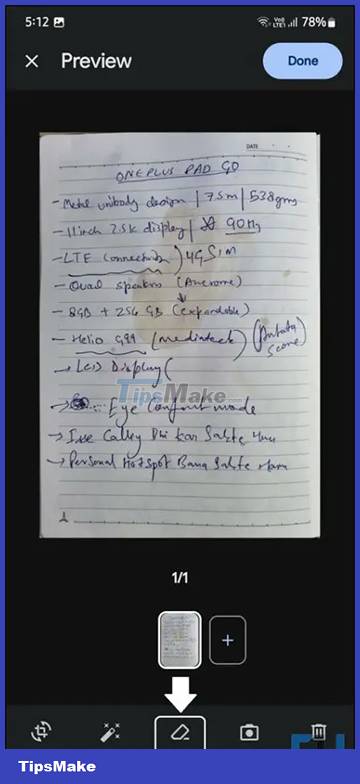 5:12 78%
Preview
Done
DATE
ONEPLUS PAD GO
- Metal unibody design | 7.5m | 538gms
- 11inch 2.5K display | 90Hz
- LTE (connection) 4G SIM
- Quad speakers (Awesome)
- 8GB + 256 GB (expandable)
- Helio G99 (mediateck) (Antutu score)
→ LCD Display (
TipsMake.com
→ Eye Comfort mode
→ Isse Calling Bhi kar Sakte
→ Personal Hotspot Bana Sakte
1/1
+
TipsMake